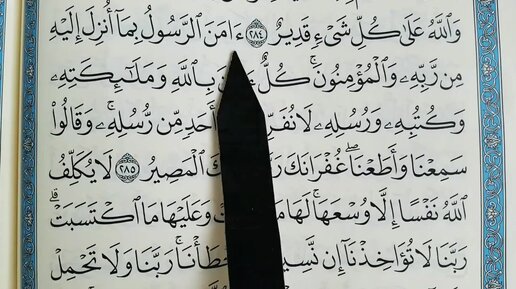 وَٱللَّهُ عَلَىٰ كُلِّ شَىۡءٖ قَدِيرٌ ٢٨٤ ءَامَنَ ٱلرَّسُولُ بِمَآ أُنزِلَ إِلَيۡهِ
مِن رَّبِّهِۦ وَٱلۡمُؤۡمِنُونَۚ كُلٌّ بِٱللَّهِ وَمَلَٰٓئِكَتِهِۦ
وَكُتُبِهِۦ وَرُسُلِهِۦ لَا أَحَدٖ مِّن رُّسُلِهِۦۚ وَقَالُواْ
سَمِعۡنَا وَأَطَعۡنَاۖ غُفۡرَانَكَ ٱلۡمَصِيرُ ٢٨٥ لَا يُكَلِّفُ
ٱللَّهُ نَفۡسًا إِلَّا وُسۡعَهَاۚ لَهَا وَعَلَيۡهَا مَا ٱكۡتَسَبَتۡۗ
رَبَّنَا لَا تُؤَاخِذۡنَآ إِن رَبَّنَا وَلَا تَحۡمِلۡ